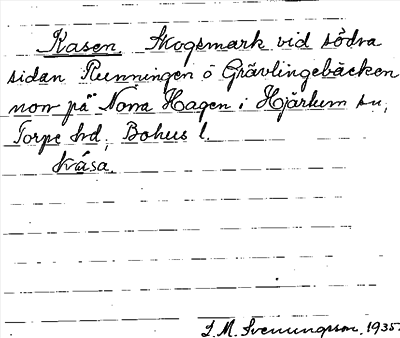 Kasen. Skogsmark vid södra
sidan Runningen o Grävlingebäcken
norr på Norra Hagen i Hjärtum sn,
Torpe hrd, Bohus l.
kråsa.
S. M. Svenungsson, 1935.